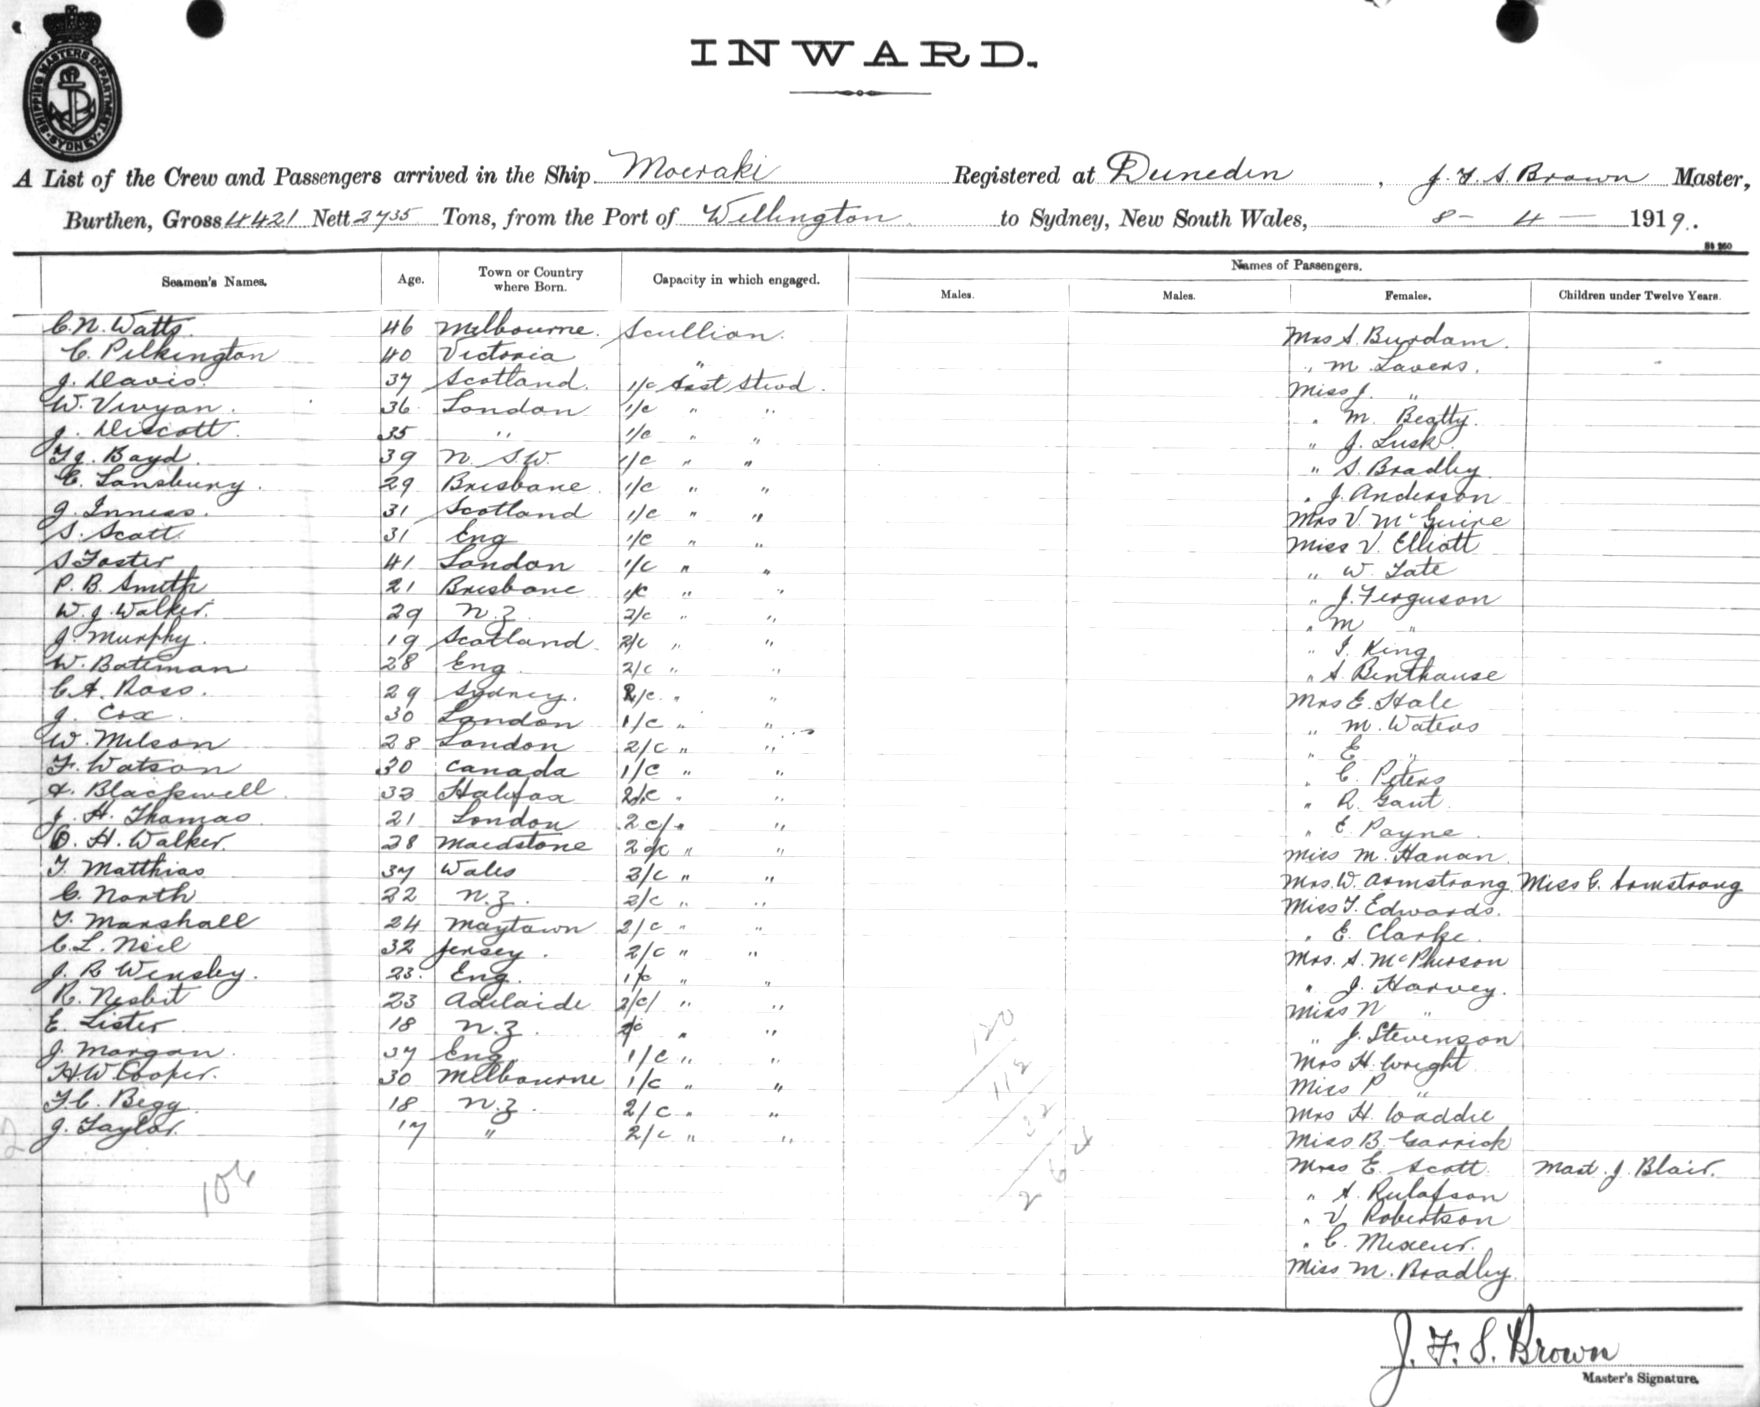 SHIPPING MASTERS DEPARTMENT SYDNEY
INWARD.
A List of the Crew and Passengers arrived in the Ship Moeraki Registered at Dunedin, J. F. S. Brown Master,
Burthen, Gross 4421 Nett 2735 Tons, from the Port of Wellington to Sydney, New South Wales, 8 - 4 - 1919.
Names of Passengers.
Seamen's Names. Age. Town or Country where Born. Capacity in which engaged. Males. Males. Females. Children under Twelve Years.
C. N. Watts. 46 Melbourne. Scullion. Mrs S. Burdam.
C. Pilkington 40 Victoria " " M. Lavers.
J. Davis. 37 Scotland. 1/c Asst Stwd. Miss J. "
W. Vivyan. 36 London 1/c " " " M. Beatty.
J. Discott. 35 " 1/c " " " J. Lusk.
F. G. Boyd. 39 N. S. W. 1/c " " " S. Bradley
E. Lansbury. 29 Brisbane. 1/c " " " J. Anderson
J. Inness. 31 Scotland 1/c " " Mrs V. McGuire
S. Scott. 31 Eng 1/c " " Miss V. Elliott
S Foster 41 London 1/c " " " W. Tate
P. B. Smith 21 Brisbane 1/c " " " J. Ferguson
W. J. Walker. 29 N.Z 2/c " " " M "
J. Murphy. 19 Scotland. 2/c " " " I. King
W. Bateman 28 Eng 2/c " " " A. Benthause
C. A. Ross. 29 Sydney. 2/c " " Mrs E. Hale
J. Cox. 30 London 1/c " " " M. Waters
W. Milson 28 London 2/c " " " E "
F. Watson 30 Canada 1/c " " " C. Peters
A. Blackwell. 33 Halifax 2/c " " " R. Gaut.
J. H. Thomas 21 London 2 c/ " " " E. Payne.
C. H. Walker. 28 Maidstone 2/c " " Miss M. Hanan.
T. Matthias 37 Wales 2/c " " Mrs. W. Armstrong Miss C. Armstrong
C. North 22 N.Z. 2/c " " Miss F. Edwards.
T. Marshall 24 Maytown 2/c " " " E. Clarke.
C. L. Neil 32 Jersey. 2/c " " Mrs. A. McPherson
J. R. Wensley. 23. Eng. 1/c " " " J. Harvey.
R. Nesbit 23 Adelaide 2/c/ " " Miss N "
E. Lister 18 N.Z. 2/c " " " J. Stevenson
J. Morgan. 37 Eng 1/c " " Mrs H. Wright
H. W. Cooper. 30 Melbourne 1/c " " Miss P "
F. C. Begg 18 N.Z. 2/c " " Mrs H. Waddie
J. Taylor. 17 " 2/c " " Miss B. Garrick
Mrs E. Scott. Mast. J. Blair.
" A. Rulafson
" V. Robertson
" C.
Miss M. Bradley.
106
120
112
32
264
2
J. F. S. Brown
Master's Signature.